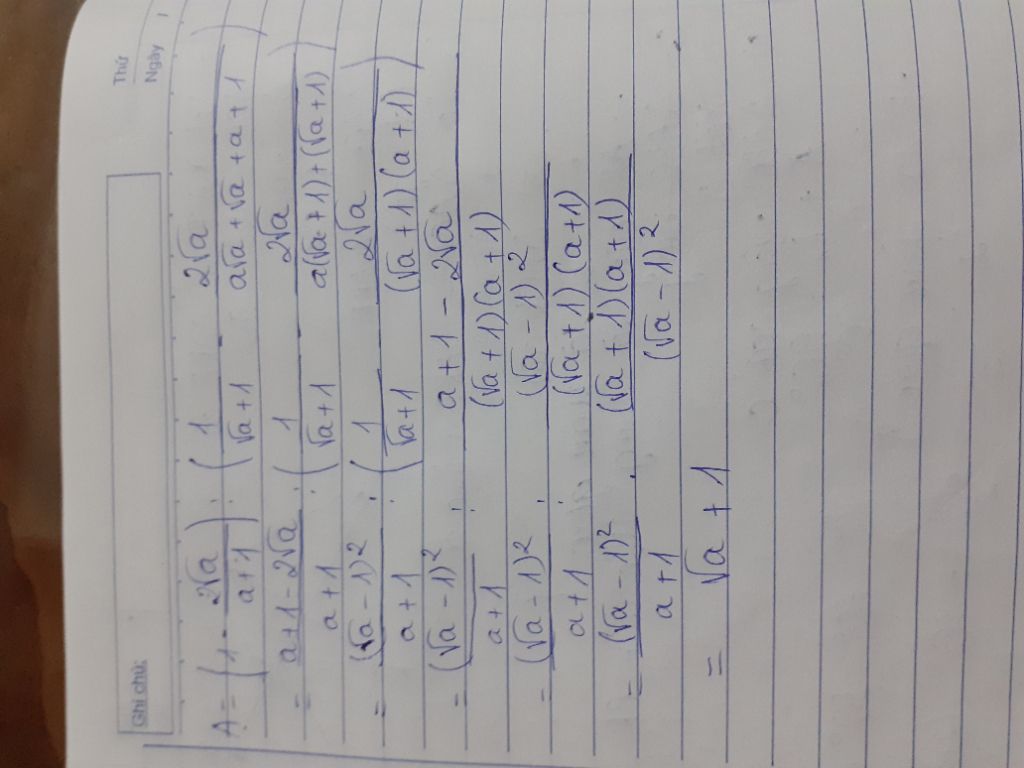 Thứ
Ngày
Ghi chú:
A = (1 - 2√a/(a+1)) : (1/(√a+1) - 2√a/(a√a+√a+a+1))
= (a+1-2√a)/(a+1) : (1/(√a+1) - 2√a/(a(√a+1)+(√a+1)))
= (√a-1)²/(a+1) : (1/(√a+1) - 2√a/((√a+1)(a+1)))
= (√a-1)²/(a+1) : (a+1-2√a)/((√a+1)(a+1))
= (√a-1)²/(a+1) : (√a-1)²/((√a+1)(a+1))
= (√a-1)²/(a+1) . (√a+1)(a+1)/(√a-1)²
= √a+1